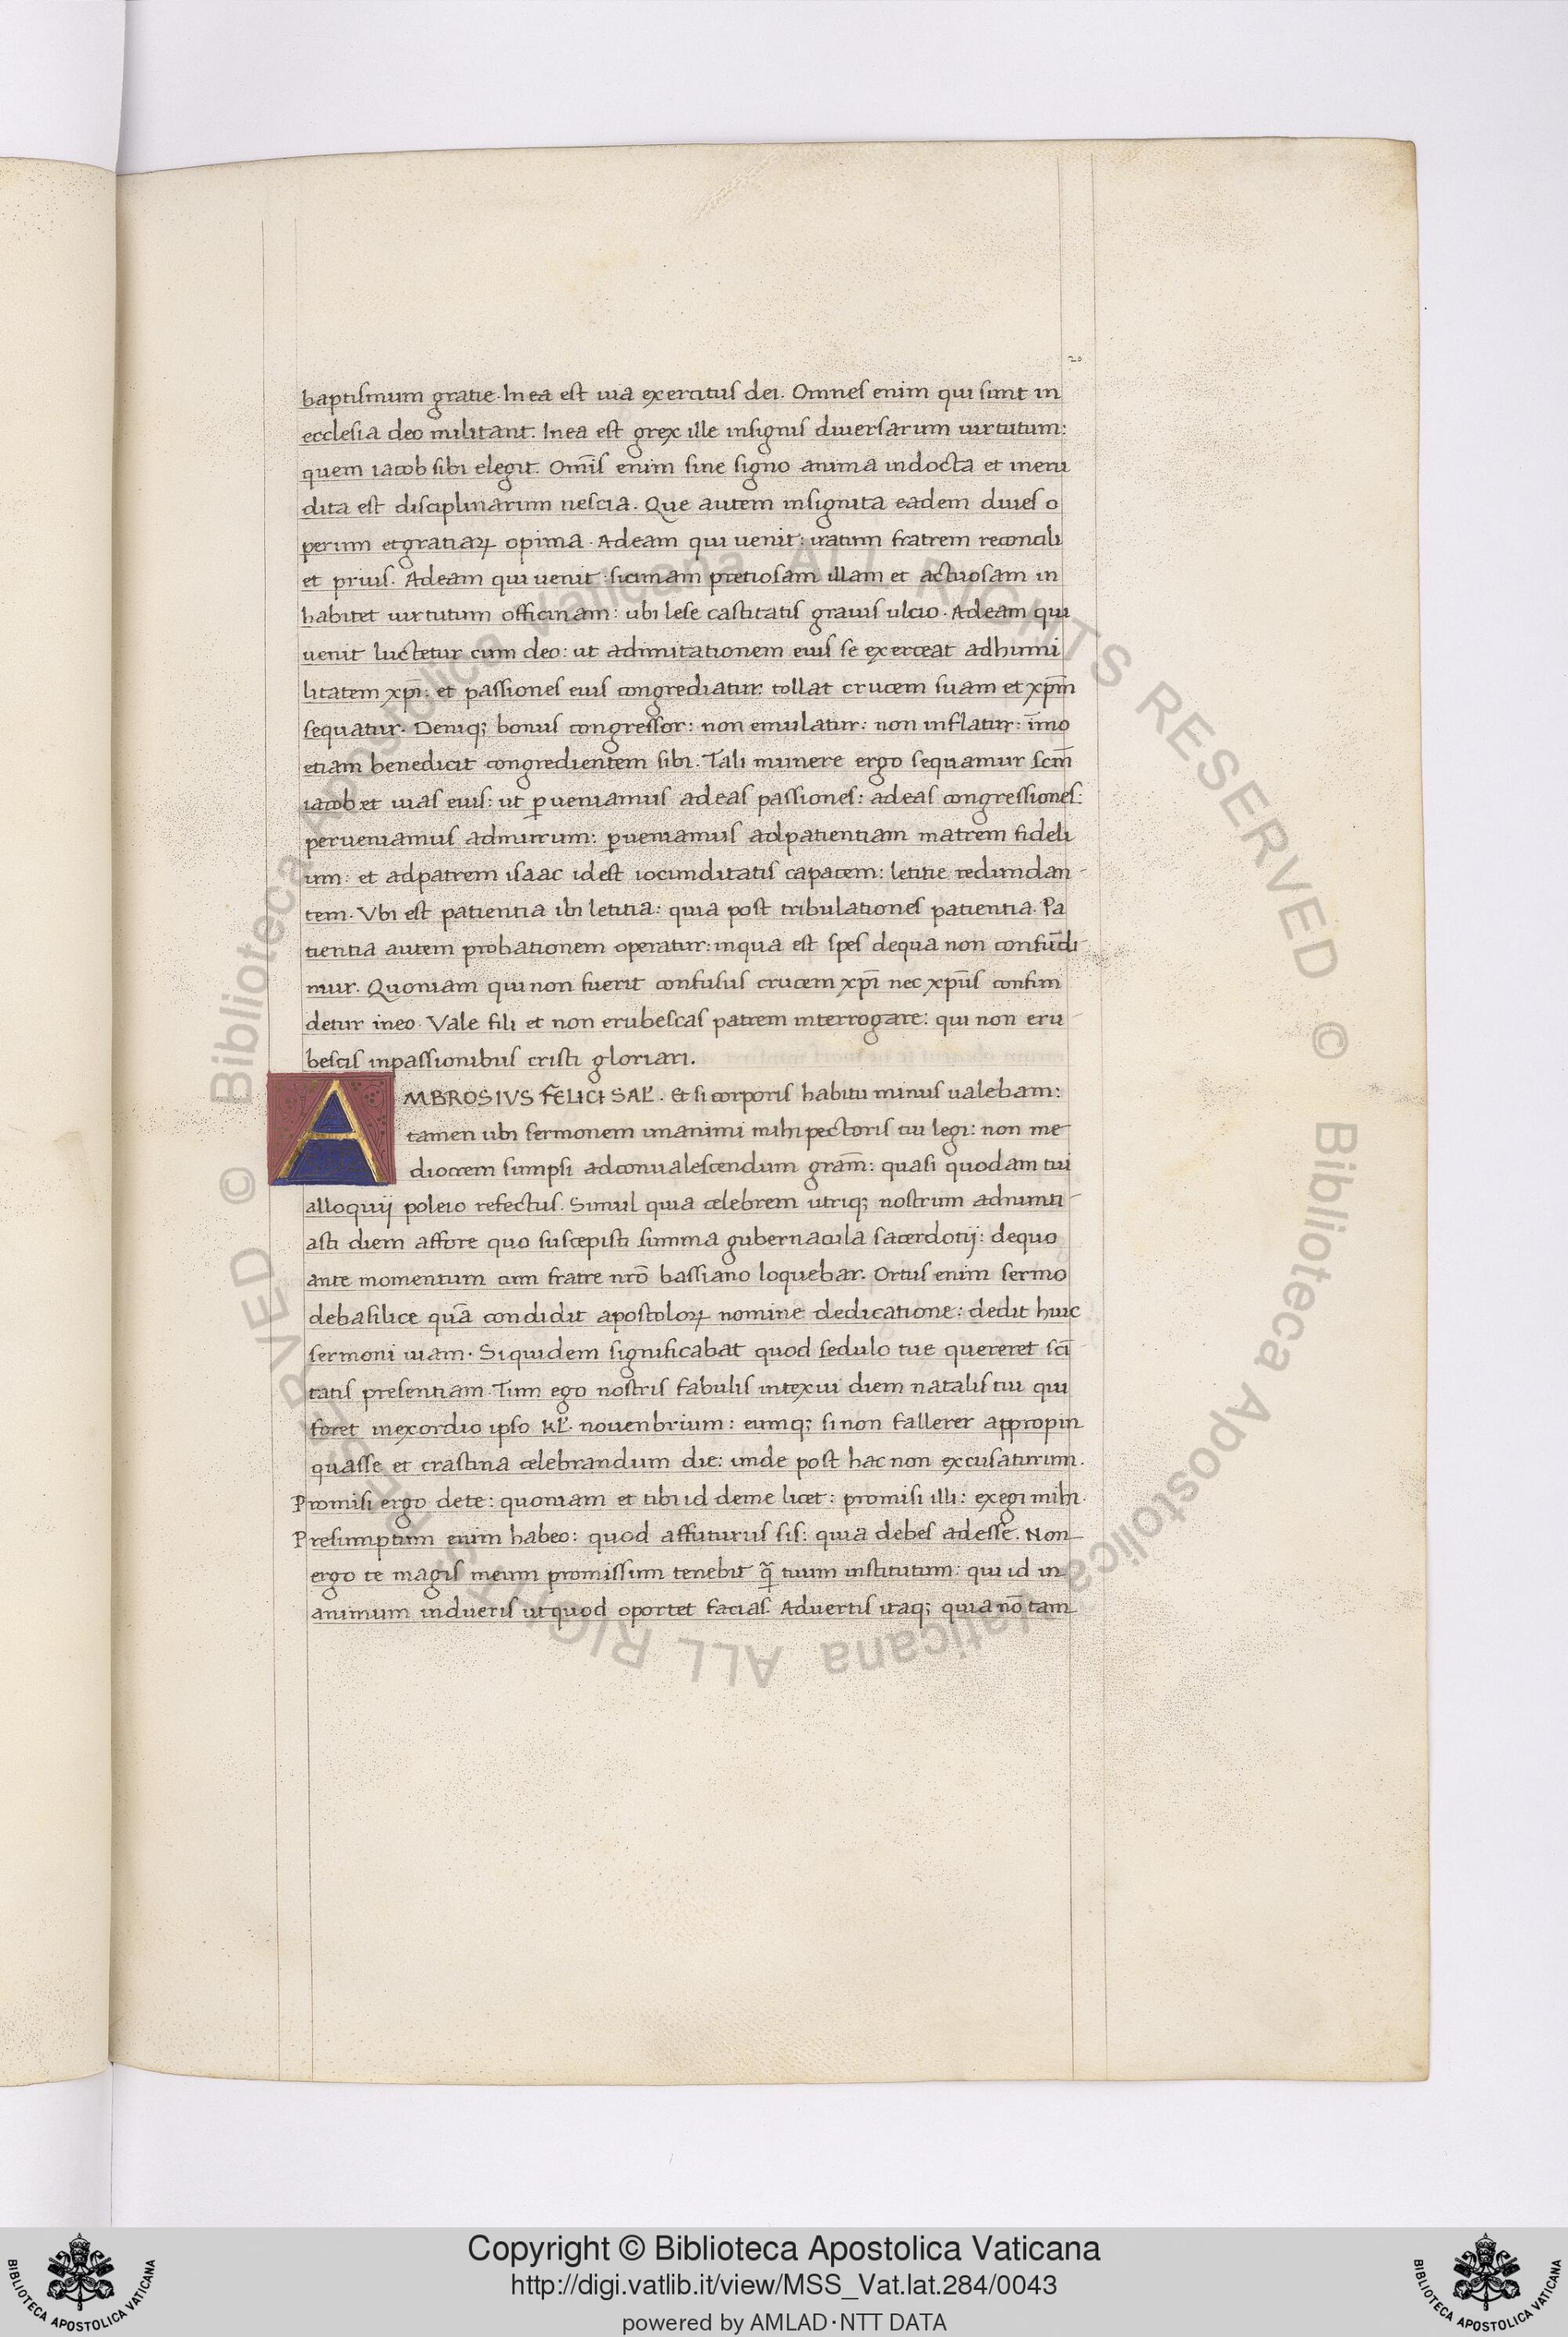 20
baptismum gratie. In ea est uia exercitus dei. Omnes enim qui sunt in
ecclesia deo militant. In ea est grex ille insignis diuersarum uirtutum:
quem iacob sibi elegit. Om̄is enim sine signo anima indocta et ineru
dita est disciplinarum nescia. Que autem insignita eadem diues o
perum et gratiaꝝ opima. Ad eam qui uenit: iratum fratrem reconcili
et prius. Ad eam qui uenit: sicimam pretiosam illam et actuosam in
habitet uirtutum officinam: ubi lese castitatis grauis ulcio. Ad eam qui
uenit luctetur cum deo: ut ad imitationem eius se exerceat ad humi
litatem xp̄i: et passiones eius congrediatur. tollat crucem suam et xp̄m
sequatur. Deniq; bonus congressor: non emulatur: non inflatur: im̄o
etiam benedicit congredientem sibi. Tali munere ergo sequamur sc̄m
iacob et uias eius: ut ꝑueniamus ad eas passiones: ad eas congressiones:
perueniamus ad murum: ꝑueniamus ad patientiam matrem fideli
um: et ad patrem isaac id est iocunditatis capacem: letitie redundan
tem. Vbi est patientia ibi letitia: quia post tribulationes patientia. Pa
tientia autem probationem operatur: in qua est spes de qua non confūdi
mur. Quoniam qui non fuerit confusus crucem xp̄i nec xp̄us confun
detur in eo. Vale fili et non erubescas patrem interrogare: qui non eru
bescis in passionibus cristi gloriari.
AMBROSIVS FELICI SAL̄. Et si corporis habitu minus ualebam:
tamen ubi sermonem unanimi mihi pectoris tui legi: non me
diocrem sumpsi ad conualescendum gram̄: quasi quodam tui
alloquij poleio refectus. Simul quia celebrem utriq; nostrum adnunti
asti diem affore quo suscepisti summa gubernacula sacerdotij: de quo
ante momentum cum fratre nr̄o bassiano loquebar. Ortus enim sermo
de basilice quā condidit apostoloꝝ nomine dedicatione: dedit huic
sermoni uiam. Siquidem significabat quod sedulo tue quereret sc̄i
tatis presentiam. Tum ego nostris fabulis intexui diem natalis tui qui
foret in exordio ipso kl̄. nouenbrium: eumq; si non fallerer appropin
quasse et crastina celebrandum die: unde post hac non excusaturum.
Promisi ergo de te: quoniam et tibi id de me licet: promisi illi: exegi mihi.
Presumptum enim habeo: quod affuturus sis: quia debes adesse. Non
ergo te magis meum promissum tenebit q̄ tuum institutum: qui id in
animum indueris ut quod oportet facias. Aduertis itaq; quia nō tam
© Biblioteca Apostolica Vaticana ALL RIGHTS RESERVED © Biblioteca Apostolica Vaticana ALL RIGHTS RESERVED
Copyright © Biblioteca Apostolica Vaticana
http://digi.vatlib.it/view/MSS_Vat.lat.284/0043
powered by AMLAD·NTT DATA
BIBLIOTECA APOSTOLICA VATICANA
BIBLIOTECA APOSTOLICA VATICANA